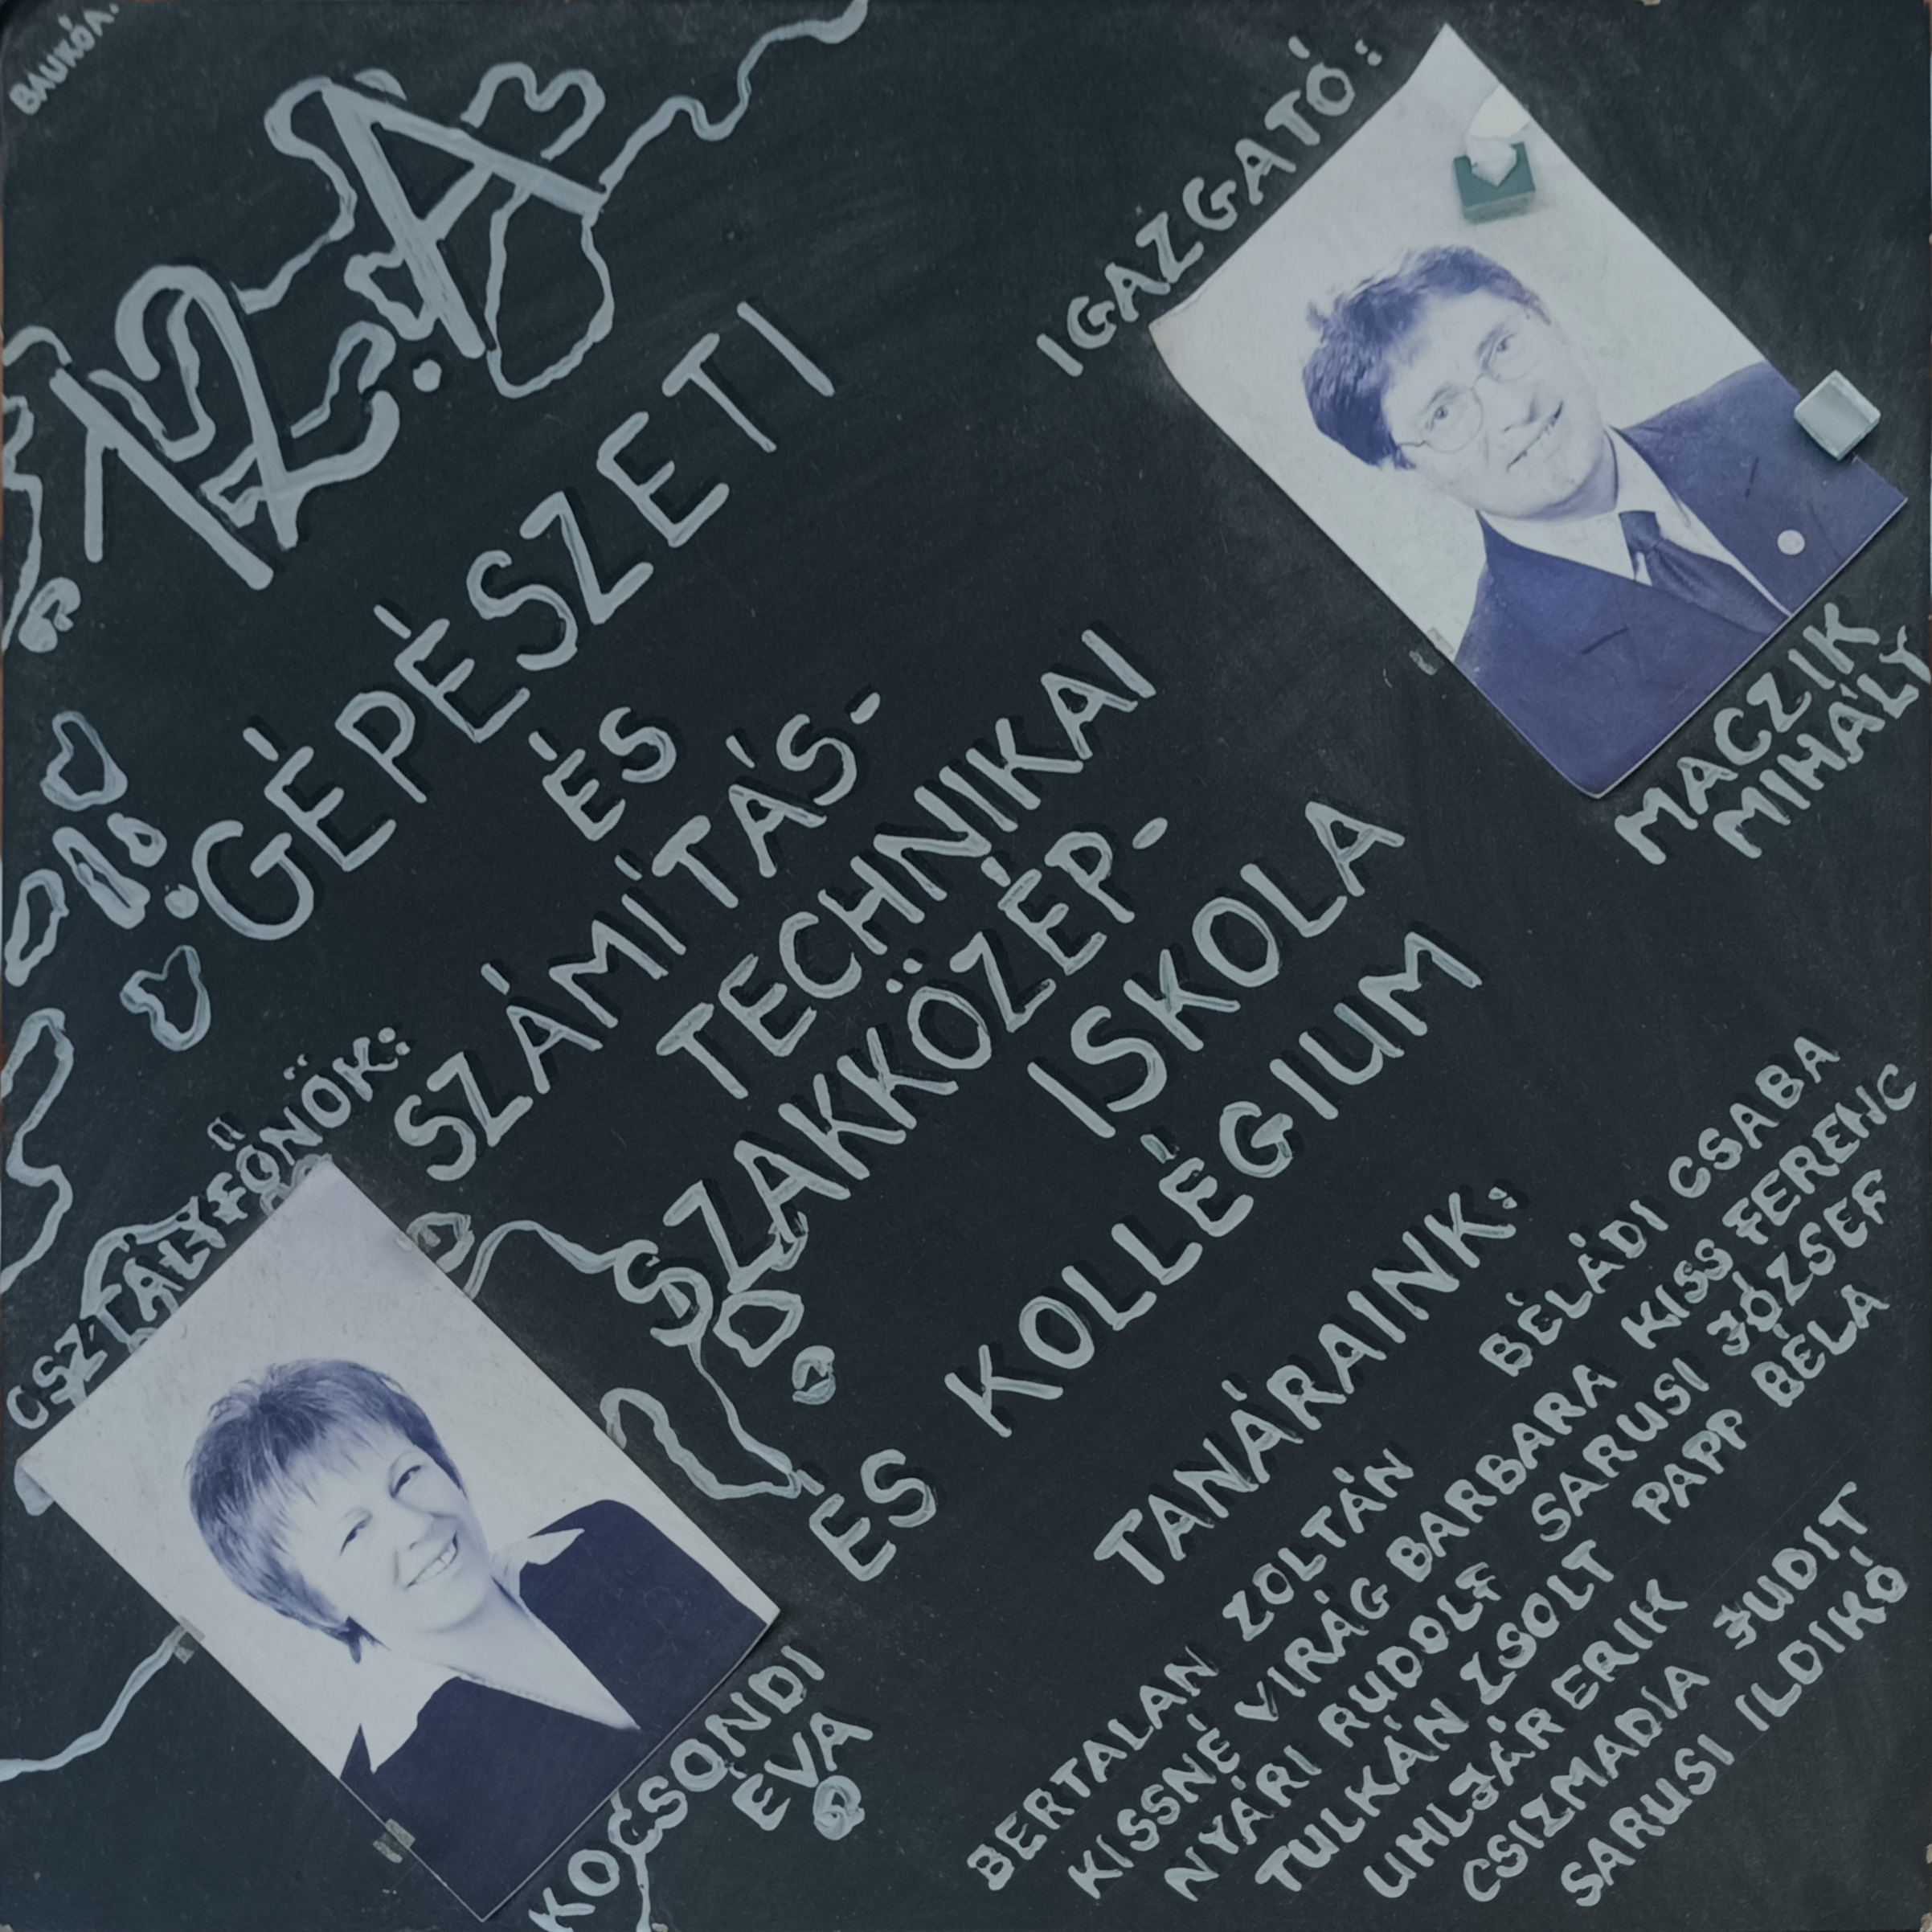 BAUKÓA.
12.A
GÉPÉSZETI
ÉS
SZÁMÍTÁS-
TECHNIKAI
SZAKKÖZÉP-
ISKOLA
ÉS KOLLÉGIUM
IGAZGATÓ:
MACZIK
MIHÁLY
OSZTÁLYFŐNÖK:
KOCSONDI
ÉVA
TANÁRAINK:
BERTALAN ZOLTÁN BÉLÁDI CSABA
KISSNÉ VIRÁG BARBARA KISS FERENC
NYÁRI RUDOLF SARUSI JÓZSEF
TULKÁN ZSOLT PAPP BÉLA
UHLJÁR ERIK
CSIZMADIA JUDIT
SARUSI ILDIKÓ